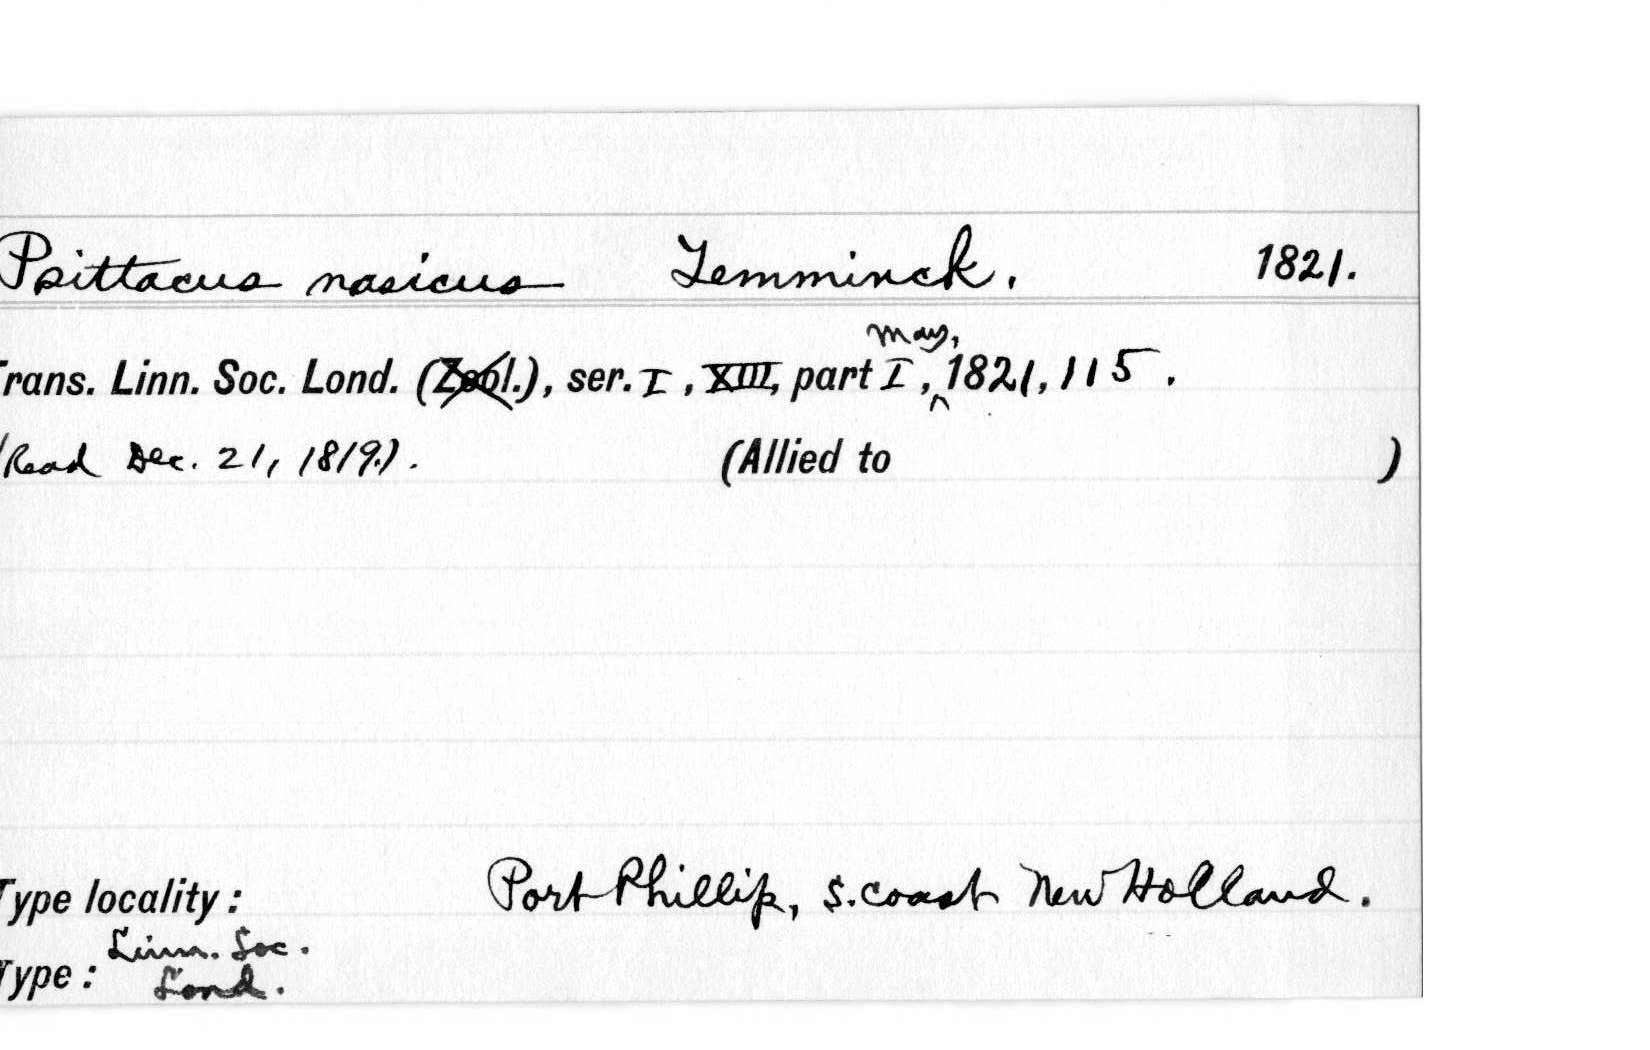 Psittacus nasicus Temminck. 1821.
May,
rans. Linn. Soc. Lond. (Zool.), ser. I, XIII, part I, 1821, 115.
(Read Dec. 21, 1819.). (Allied to )
Type locality: Port Phillip, S. coast New Holland.
Linn. Soc.
Type: Lond.